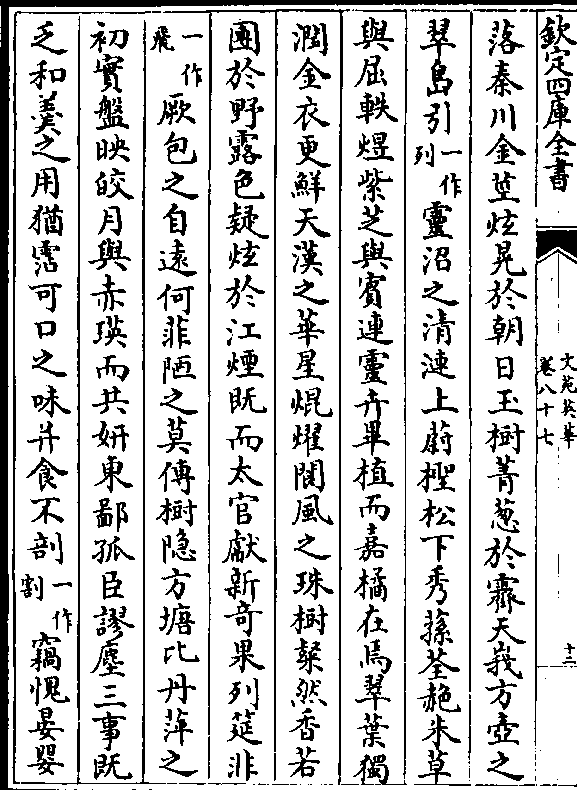 欽定四庫全書
文苑英華
卷八十七
十二
落秦川金莖炫晃於朝日玉樹菁葱於霽天峩方壺之
翠島引一作列靈沼之清漣上蔚檉松下秀蓀荃赩朱草
與屈軼煜紫芝與賓連靈卉畢植而嘉橘在焉翠葉獨
潤金衣更鮮天漢之華星焜燿閬風之珠樹粲然香若
團於野露色疑炫於江煙既而太官獻新奇果列筵非
一作飛厥包之自遠何菲陋之莫傳樹隐方塘比丹萍之
初實盤映皎月與赤瑛而共妍東鄙孤臣謬塵三事既
乏和羮之用猶霑可口之味幷食不剖一作割竊愧晏嬰